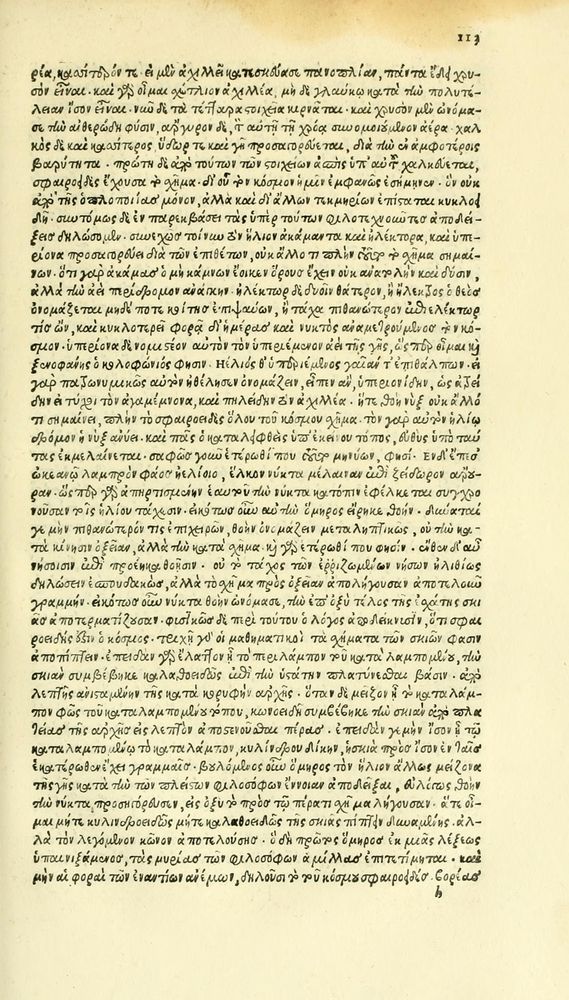 113
ρία, κασσίτερόν τε. εἰ μὲν ἀχιλλεῖ κατεσκεύασε πανοπλίαν, πάντα ἔδει χρυ-
σὸν εἶναι. καὶ γὰρ οἶμαι σχέτλιον ἀχιλλέα, μηδὲ γλαύκῳ κατὰ τὴν πολυτέ-
λειαν ἴσον εἶναι. νῦν δὲ τὰ τέτταρα στοιχεῖα κίρναται. καὶ χρυσὸν μὲν ὠνόμα-
σε τὴν αἰθερώδη φύσιν, ἄργυρον δὲ, τ αὐτῇ τῇ χρόᾳ συνομοιούμενον ἀέρα. χαλ
κὸς δὲ καὶ κασσίτερος, ὕδωρ τε καὶ γῆ προσαγορεύεται, διὰ τὴν ἐν ἀμφοτέροις
βαρύτητα. πρώτη δὲ ἀπὸ τούτων τῶν στοιχείων ἀσπὶς ὑπ' αὐτοῦ χαλκεύεται,
σφαιροειδὲς ἔχουσα τὸ σχῆμα. δι' οὗ τὸν κόσμον ἡμῖν ἐμφανῶς ἐσήμηνεν. ὃν οὐκ
ἀπὸ τῆς ὁπλοποιίας μόνον, ἀλλὰ καὶ δι' ἄλλων τεκμηρίων ἐπίσταται κυκλοει
δῆ. συντόμως δὲ ἐν παρεκβάσει τὰς ὑπὲρ τούτων φιλοτεχνούσας ἀποδεί-
ξεις δηλώσομεν. συνεχῶς τοίνυν τὸν ἥλιον ἀκάμαντα καὶ ἠλέκτορα, καὶ ὑπε-
ρίονα προσαγορεύει διὰ τῶν ἐπιθέτων, οὐκ ἄλλο τι πλὴν τοῦτο τὸ σχῆμα σημαί-
νων. ὅτε γὰρ ἀκάμας ὁ μὴ κάμνων ἔοικεν ὅρους ἔχειν οὐκ ἀνατολὴν καὶ δύσιν,
ἀλλὰ τὴν ἀεὶ περίδρομον ἀνάγκην. ἠλέκτωρ δὲ δυεῖν θάτερον, ἢ ἤλεκτος ὁ θεὸς
ὀνομάζεται μηδέποτε κοίτης ἐπιψαύων, ἢ τάχα πιθανώτερον ἐπεὶ ἑλέκτωρ
τίς ὢν, καὶ κυκλοτερεῖ φορᾷ δι' ἡμέρας καὶ νυκτὸς ἀναμετρούμενος τὸν κό-
σμον. ὑπερίονα δὲ νομιστέον αὐτὸν τὸν ὑπεριέμενον ἀεὶ τῆς γῆς, ὥσπερ οἶμαι κỳ
ξενοφάνης ὁ κολοφώνιός φησιν. Ἠέλιος θ' ὑπεριέμενος γαῖαν τ' ἐπιθάλπων. εἰ
γὰρ πατρωνυμικῶς αὐτὸν ἠθέλησεν ὀνομάζειν, εἶπεν ἂν, ὑπεριονίδην, ὡς ἀτρεί
δην εἰ τύχοι τὸν ἀγαμέμνονα, καὶ πηλείδην τὸν ἀχιλλέα. ἥτε θοὴ νὺξ οὐκ ἄλλό
τι σημαίνει, πλὴν τὸ σφαιροειδὲς ὅλου τοῦ κόσμου σχῆμα. τὸν γὰρ αὐτὸν ἡλίῳ
δρόμον ἡ νὺξ ἀνύει. καὶ πᾶς ὁ καταλειφθεὶς ὑπ' ἐκείνου τόπος, εὐθὺς ὑπὸ ταύ
τας ἐκμελαίνεται. σαφῶς γοῦν ἑτέρωθί που τοῦτο μηνύων, φησί. Ἐν δ' ἔπεσ'
ὠκεανῷ λαμπρὸν φάος ἠελίοιο, ἕλκον νύκτα μέλαιναν ἐπὶ ζείδωρον ἄρου-
ραν. ὥσπερ γὰρ ἀπηρτισμένην ἑαυτοῦ τὴν νύκτα κατόπιν ἐφέλκεται συγχρο
νοῦσαν τοῖς ἡλίου τάχεσιν. εἰκότως οὖν αὐτὴν ὅμηρος εἴρηκε θοήν. δύναταί
γε μὴν πιθανώτερόν τις ἐπιχειρῶν, θοὴν ὀνομάζειν μεταληπτικῶς, οὐ τὴν κα-
τὰ κίνησιν ὀξεῖαν, ἀλλὰ τὴν κατὰ σχῆμα. κỳ γὰρ ἑτέρωθί που φησίν. ἔνθεν δ' αὖ
νήσοισιν ἐπὶ προέηκα θοῇσιν. οὐ τὸ τάχος τῶν ἐρριζωμένων νήσων ἠλιθίως
δηλώσειν ἐσπουδακὼς, ἀλλὰ τὸ σχῆμα πρὸς ὀξεῖαν ἀπολήγουσαν ἀποτελοῦν
γραμμήν. εἰκότως οὖν νύκτα θοὴν ὠνόμασε, τὴν ἐπ' ὀξὺ τέλος τῆς ἐσχάτης σκι
ᾶς ἀποτερματίζουσαν. φυσικῶς δὲ περὶ τούτου ὁ λόγος ἀποδείκνυσιν, ὅτι σφαι
ροειδής ἐστιν ὁ κόσμος. τριχῇ γὰρ οἱ μαθηματικοὶ τὰ σχήματα τῶν σκιῶν φασιν
ἀποπίπτειν. ἐπειδὰν γὰρ ἔλαττον ᾖ τὸ περιλάμπον τοῦ καταλαμπομένου, τὴν
σκιὰν συμβέβηκε καλαθοειδῶς ἐπὶ τὴν ὑστάτην πλατύνεσθαι βάσιν. ἀπὸ
λεπτῆς ἀνισταμένην τῆς κατὰ κορυφὴν ἀρχῆς. ὅταν δὲ μεῖζον ᾖ τὸ καταλάμ-
πον φῶς τοῦ καταλαμπομένου τόπου, κωνοειδῆ συμβέβηκε τὴν σκιὰν ἀπὸ πλα
τείας τῆς ἀρχῆς εἰς λεπτὸν ἀποστενοῦσθαι πέρας. ἐπειδὰν γε μὴν ἴσον ᾖ τῷ
καταλαμπομένῳ τὸ καταλάμπον, κυλίνδρου δίκην, ἡ σκιὰ πρὸς ἴσον ἐν ταῖς
ἑκατέρωθεν ἔχει γραμμαῖς. βουλόμενος οὖν ὅμηρος τὸν ἥλιον ἄλλως μείζονα
τῆς γῆς κατὰ τὴν τῶν πλείστων φιλοσόφων ἔννοιαν ἀποδεῖξαι, εὐλόγως, θοὴν
τὴν νύκτα, προσηγόρευσεν, εἰς ὀξὺ τὸ πρὸς τῷ πέρατι σχῆμα λήγουσαν. ἅτε οἶ-
μαι μήτε κυλινδροειδῶς μήτε καλαθοειδῶς τῆς σκιᾶς πίπτειν δυναμένης. ἀλ-
λὰ τὸν λεγόμενον κῶνον ἀποτελούσης. ὁ δὴ πρῶτος ὅμηρος ἐκ μιᾶς λέξεως
ὑπαινιξάμενος, τὰς μυρίας τῶν φιλοσόφων ἁμίλλας ἐπιτέτμηται. καὶ
μὴν αἱ φοραὶ τῶν ἐναντίων ἀνέμων, δηλοῦσι τὸ τοῦ κόσμου σφαιροειδές. βορέας
h